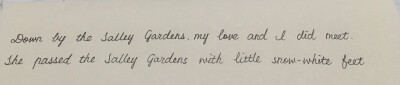 Down by the Salley Gardens, my love and I did meet.
She passed the Salley Gardens with little snow-white feet